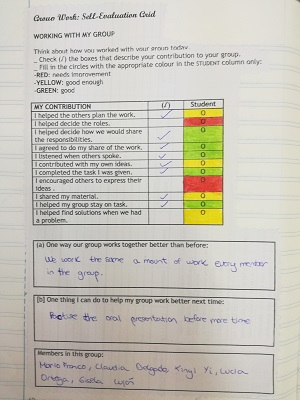 Group Work: Self-Evaluation Grid
WORKING WITH MY GROUP
Think about how you worked with your group today.
_ Check (/) the boxes that describe your contribution to your group.
_ Fill in the circles with the appropriate colour in the STUDENT column only:
-RED: needs improvement
-YELLOW: good enough
-GREEN: good
MY CONTRIBUTION (/) Student
I helped the others plan the work. ✓ O
I helped decide the roles. O
I helped decide how we would share the responsibilities. ✓ O
I agreed to do my share of the work. ✓ O
I listened when others spoke. ✓ O
I contributed with my own ideas. ✓ O
I completed the task I was given. ✓ O
I encouraged others to express their ideas . O
I shared my material. ✓ O
I helped my group stay on task. ✓ O
I helped find solutions when we had a problem. O
(a) One way our group works together better than before:
We work the same a mount of work every member
in the group.
[b] One thing I can do to help my group work better next time:
the oral presentation before more time
Members in this group:
Mario Franco, Claudia Delgado, Xinyi Yi, Lucía
Ortega, Gisela Luján